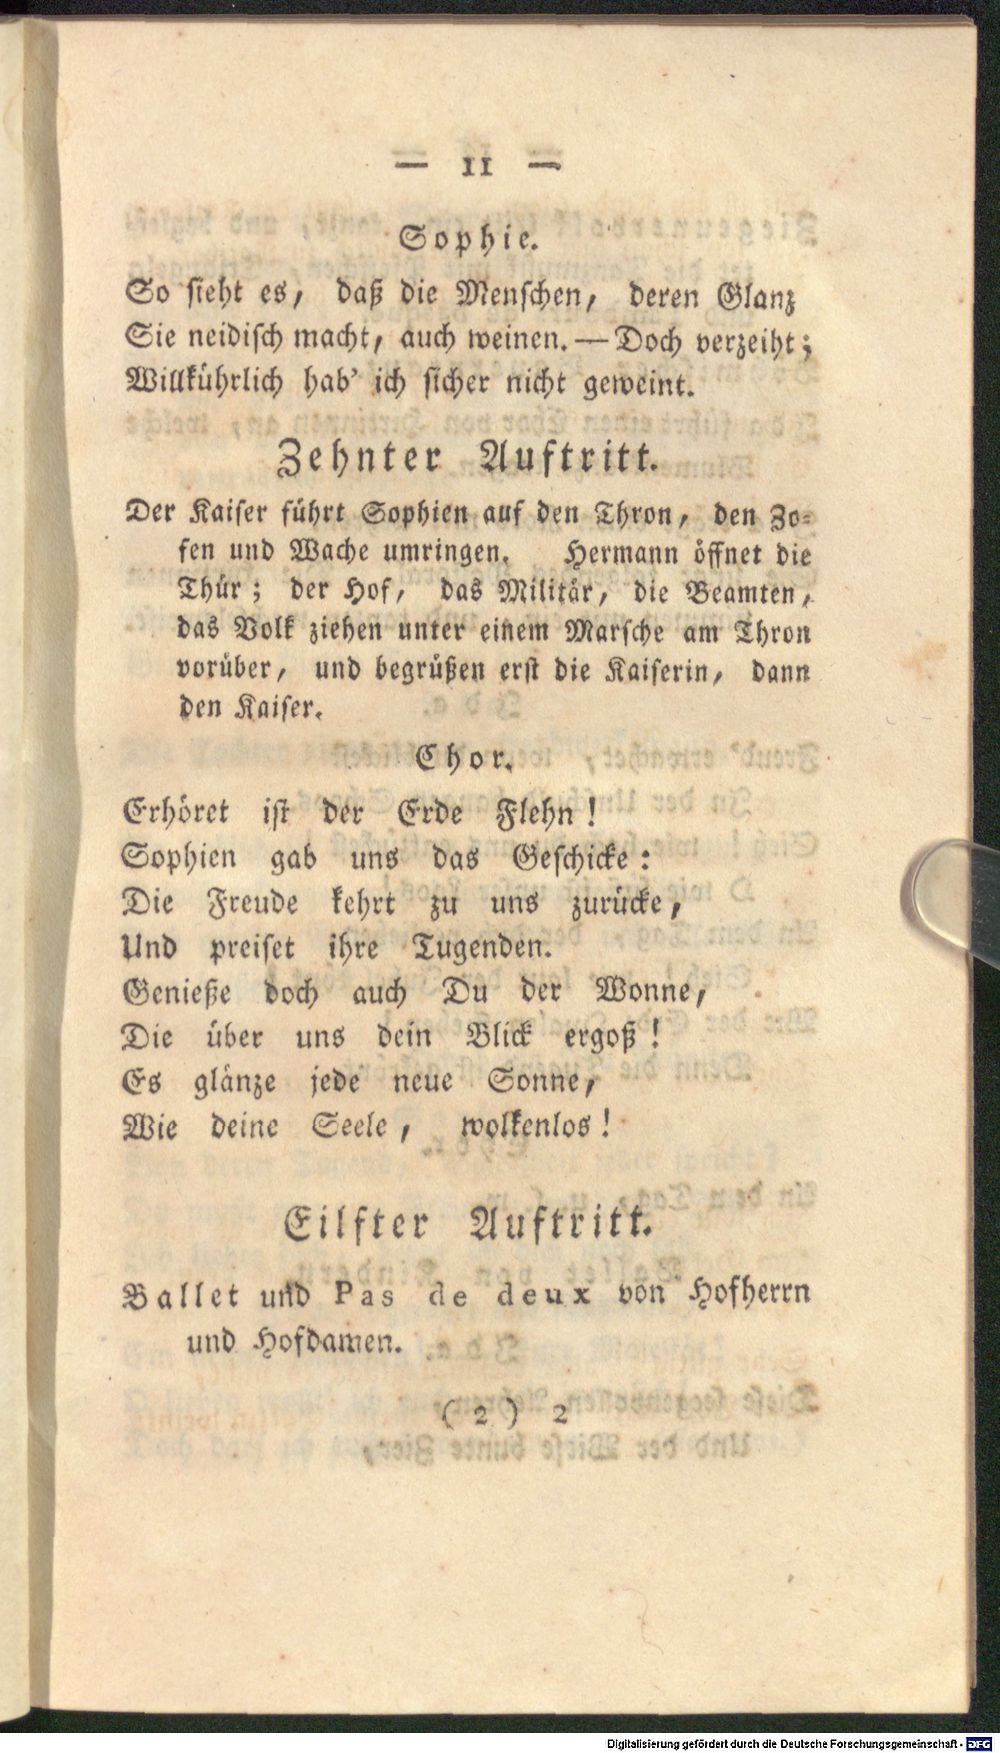 — 11 —
Sophie.
So sieht es, daß die Menschen, deren Glanz
Sie neidisch macht, auch weinen. — Doch verzeiht;
Willkührlich hab' ich sicher nicht geweint.
Zehnter Auftritt.
Der Kaiser führt Sophien auf den Thron, den Zo-
fen und Wache umringen. Hermann öffnet die
Thür; der Hof, das Militär, die Beamten,
das Volk ziehen unter einem Marsche am Thron
vorüber, und begrüßen erst die Kaiserin, dann
den Kaiser.
Chor.
Erhöret ist der Erde Flehn!
Sophien gab uns das Geschicke:
Die Freude kehrt zu uns zurücke,
Und preiset ihre Tugenden.
Genieße doch auch Du der Wonne,
Die über uns dein Blick ergoß!
Es glänze jede neue Sonne,
Wie deine Seele, wolkenlos!
Eilfter Auftritt.
Ballet und Pas de deux von Hofherrn
und Hofdamen.
( 2 ) 2
Digitalisierung gefördert durch die Deutsche Forschungsgemeinschaft - DFG